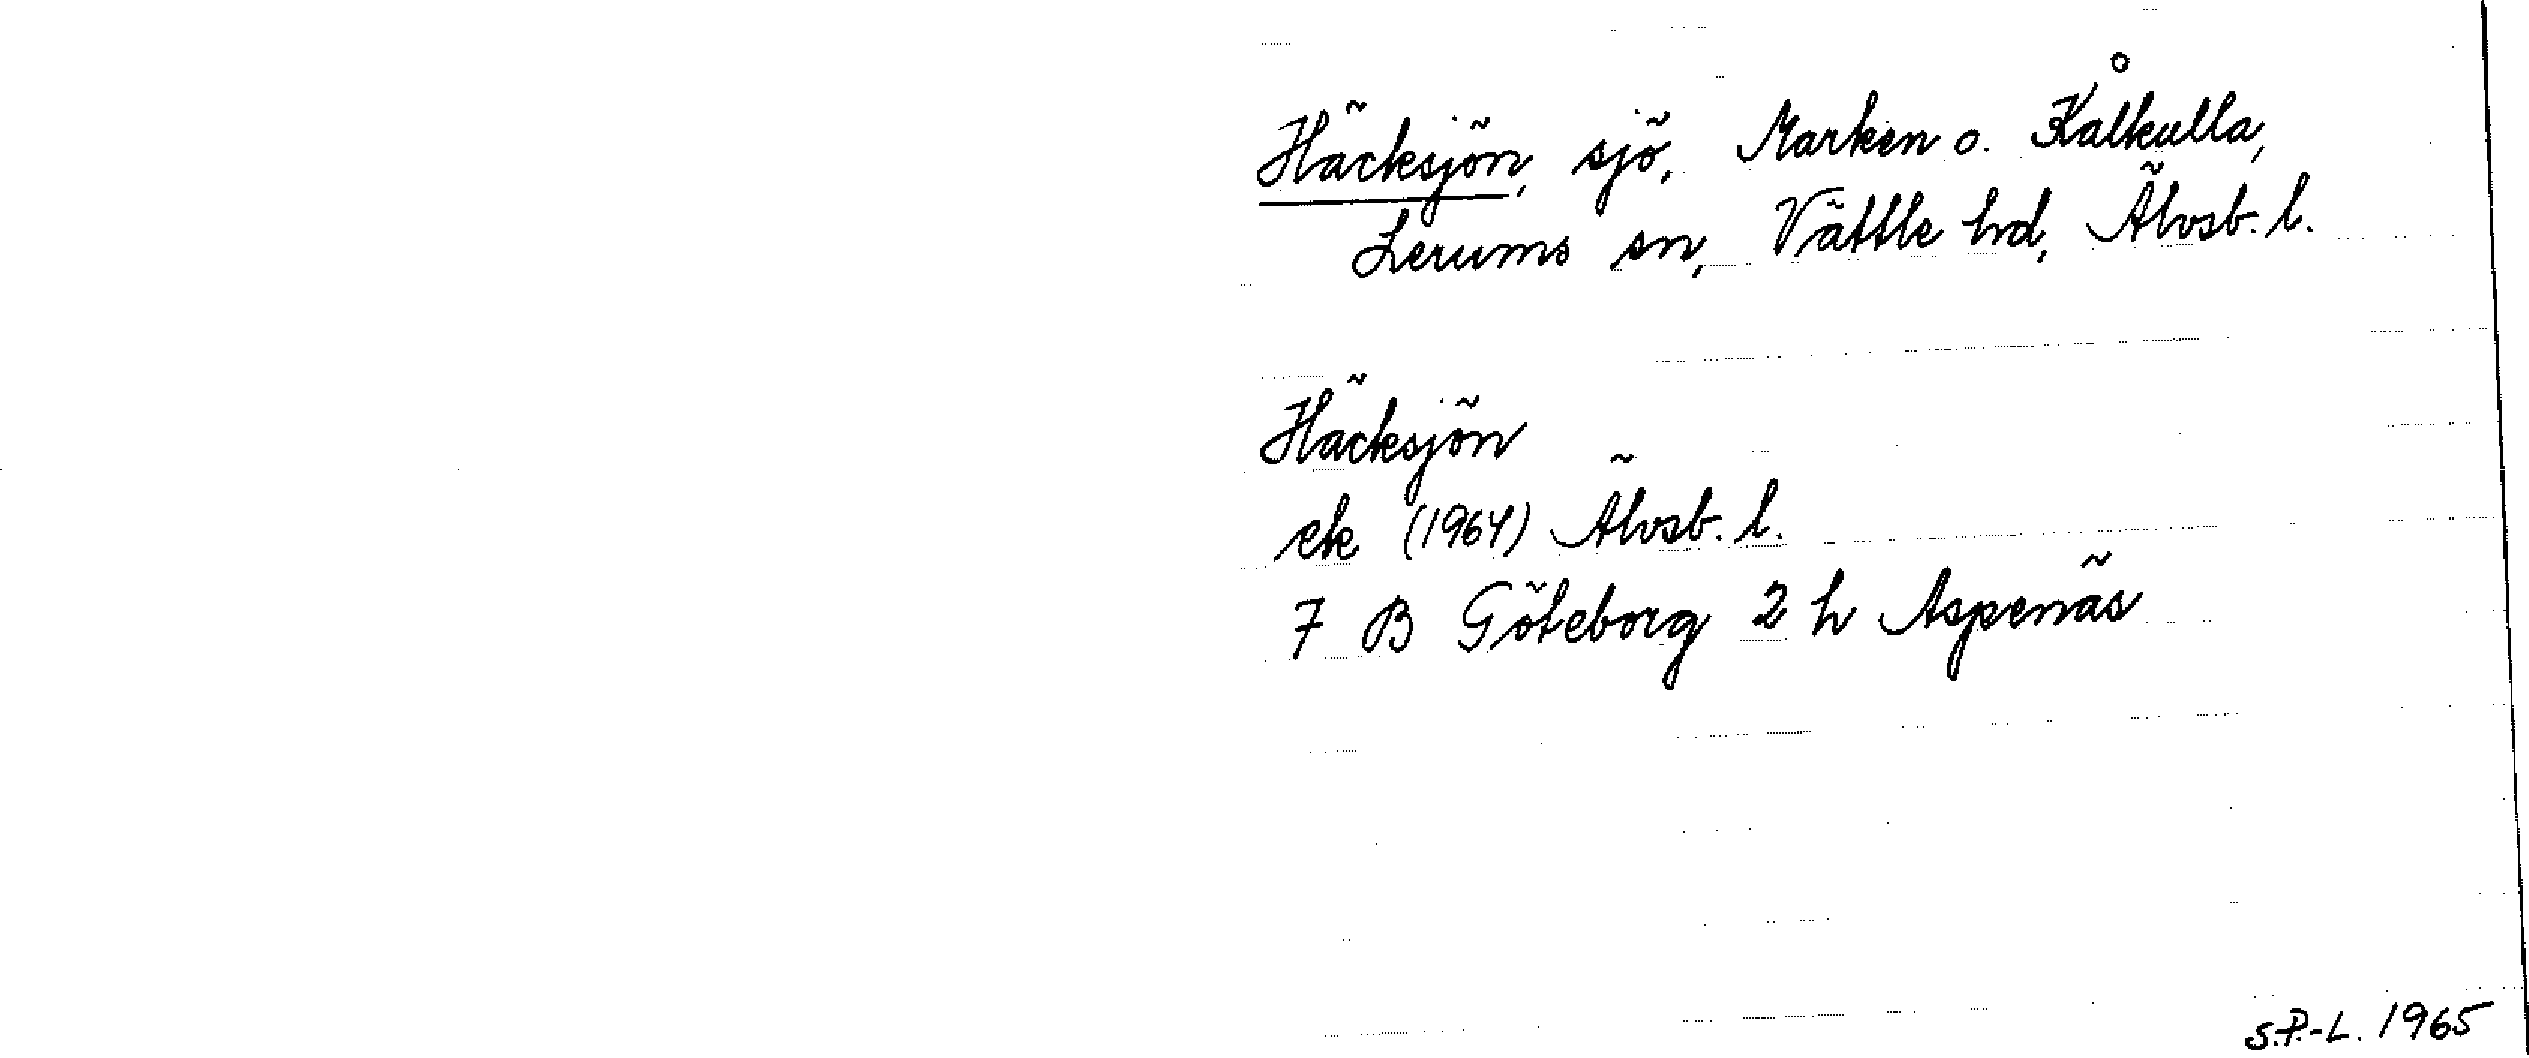 Häcksjön, sjö, Marken o. Kålkulla,
Lerums sn, Vättle hd, Älvsb. l.
Häcksjön
ek (1964) Älvsb. l.
7 B Göteborg 2 h Aspenäs
S.P.-L. 1965